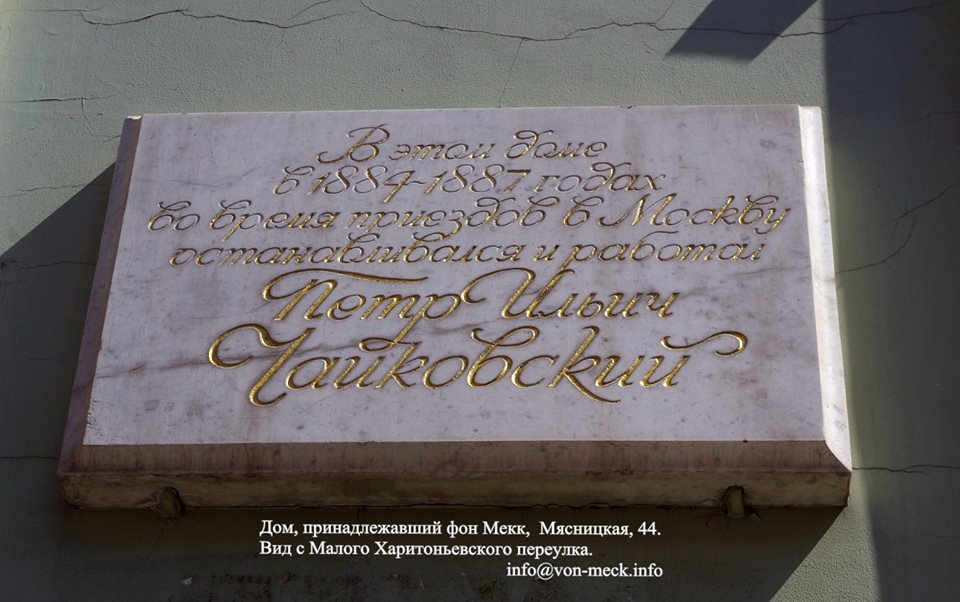 В этом доме
в 1884-1887 годах
во время приездов в Москву
останавливался и работал
Петр Ильич
Чайковский
Дом, принадлежавший фон Мекк, Мясницкая, 44.
Вид с Малого Харитоньевского переулка.
info@von-meck.info